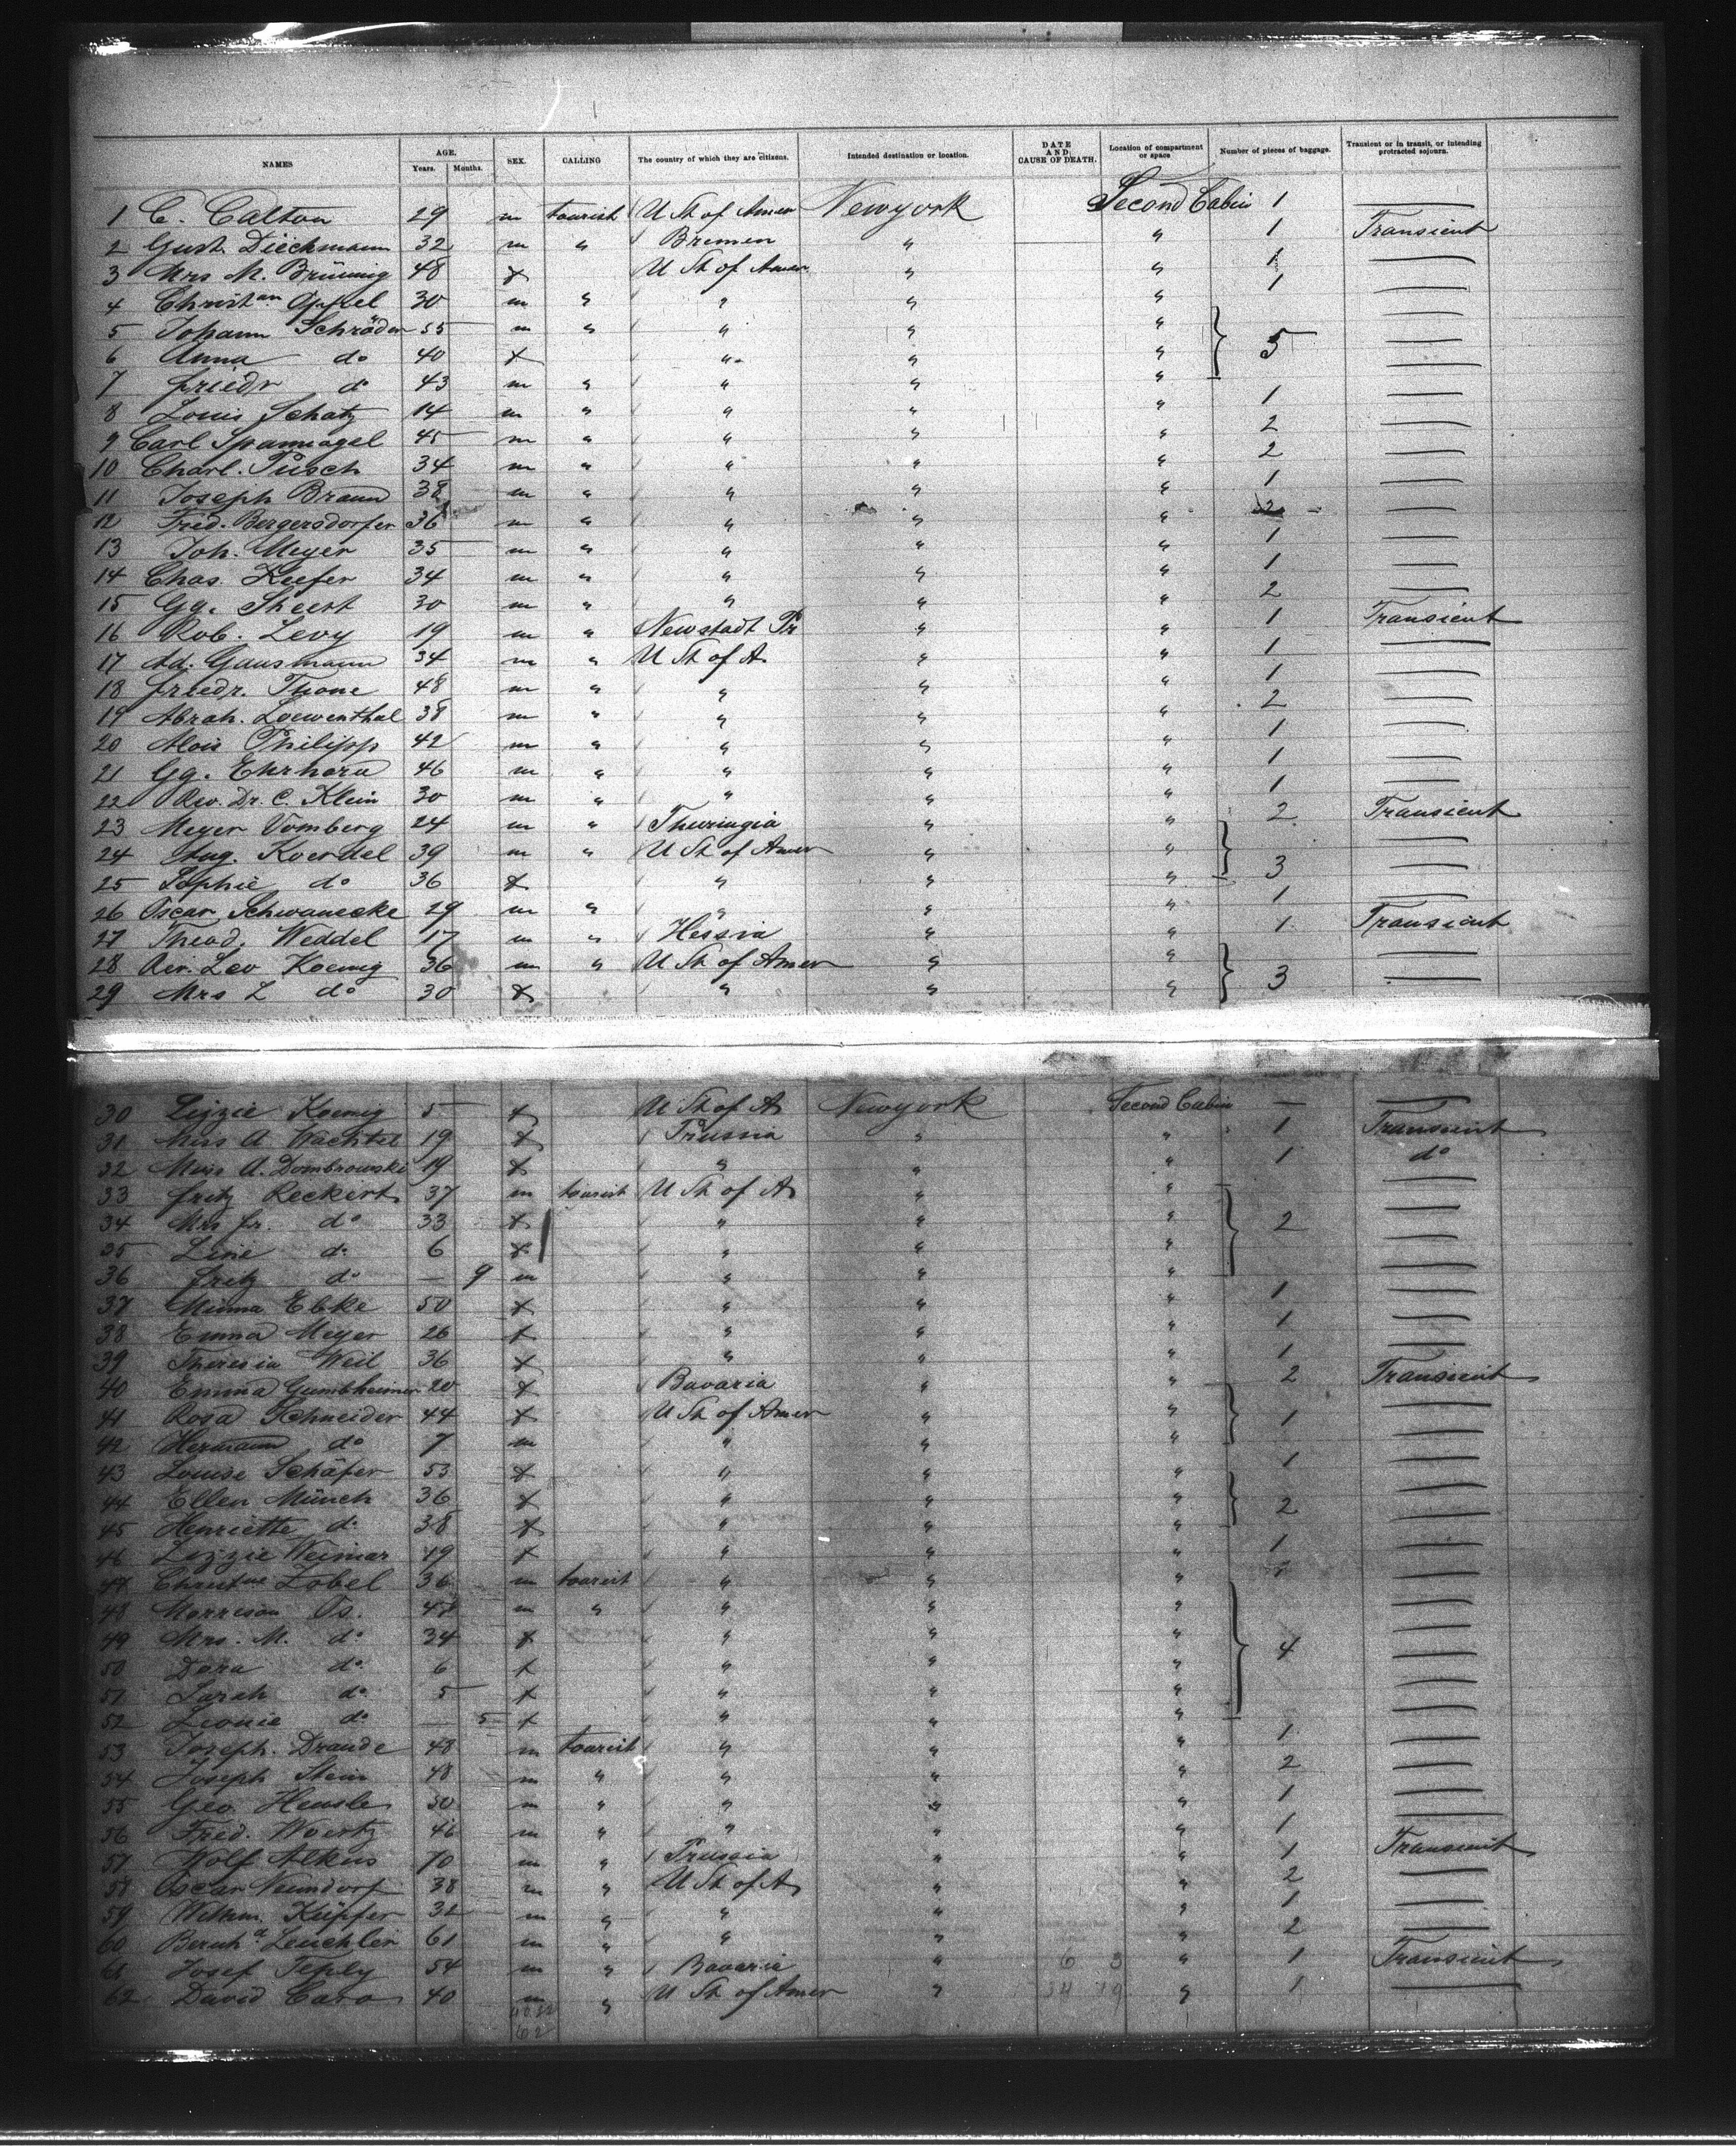 NAMES AGE. Years. Months. SEX. CALLING The country of which they are citizens. Intended destination or location. DATE AND CAUSE OF DEATH. Location of compartment or space Number of pieces of baggage. Transient or in transit, or intending protracted sojourn.
1 C. Calton 29 m tourist U St of Amer Newyork Second Cabin 1 —
2 Gust. Dieckmann 32 m " Bremen " " 1 Transient
3 Mrs M. Brüning 48 f U St of Amer " " 1 —
4 Christan Apfel 30 m " " " " 1 —
5 Johann Schröder 55 m " " " " —
6 Anna do 40 f " " " 5 —
7 Friedr do 43 m " " " " —
8 Louis Schatz 14 m " " " " 1 —
9 Carl Spannagel 45 m " " " " 2 —
10 Charl. Püsch 34 m " " " " 2 —
11 Joseph Braun 38 m " " " " 1 —
12 Fried. Bergersdorfer 36 m " " " " 2 —
13 Joh. Meyer 35 m " " " " 1 —
14 Chas. Kiefer 34 m " " " " 1 —
15 Gg. 30 m " " " " 2 —
16 Rob. Levy 19 m " Newstadt Pr " " 1 Transient
17 Ad. Gausmann 34 m " U St of A " " 1 —
18 Friedr. Thone 48 m " " " " 1 —
19 Abrah. Loewenthal 38 m " " " " 2 —
20 Alois Philipp 42 m " " " " 1 —
21 Gg. Ehrhard 46 m " " " " 1 —
22 Rev. Dr. C. Klein 30 m " " " " 1 —
23 Meyer Vomberg 24 m " Thuringia " " 2 Transient
24 Aug. Koerdel 39 m " U St of Amer " " —
25 Sophie do 36 f " " " 3 —
26 Oscar Schwanecke 29 m " " " " 1 —
27 Theod. Weddel 17 m " Hessia " " 1 Transient
28 Rev. Leo Koenig 36 m " U St of Amer " " —
29 Mrs L do 30 f " " " 3 —
30 Lizzie Koenig 5 f U St of A Newyork Second Cabin — —
31 Miss A Wachtel 19 f Prussia " " 1 Transient
32 Miss A. Dombrowski 19 f " " " 1 do
33 Fritz Reckert 37 m tourist U St of A " " —
34 Mrs Fr. do 33 f " " " 2 —
35 Line do 6 f " " " —
36 Fritz do — 9 m " " " —
37 Minna Ebke 50 f " " " 1 —
38 Emma Meyer 26 f " " " 1 —
39 Theresia Weil 36 f " " " 1 —
40 Emma Gumbheimer 20 f Bavaria " " 2 Transient
41 Rosa Schneider 44 f U St of Amer " " 1 —
42 Hermann do 7 m " " " —
43 Louise Schäfer 53 f " " " 1 —
44 Ellen Münch 36 f " " " 2 —
45 Henriette do 38 f " " " —
46 Lizzie Weimar 49 f " " " 1 —
47 Christine Zobel 36 m tourist " " " 1 —
48 Morrison 47 m " " " " —
49 Mrs. M. do 34 f " " " 4 —
50 Dora do 6 f " " " —
51 Sarah do 5 f " " " —
52 Leonie do — 5 f " " " —
53 Joseph. Draude 48 m tourist " " " 1 —
54 Joseph Stein 48 m " " " " 2 —
55 Geo. Hensle 50 m " " " " 1 —
56 Fred. Woertz 46 m " " " " 1 —
57 Wolf Alkus 70 m " Prussia " " 1 Transient
58 Oscar Neundorf 38 m " U St of A " " 2 —
59 Wilhm. Küpfer 32 m " " " " 1 —
60 Bernhd Leuchler 61 m " " " " 2 —
61 Josef Teply 54 m " Bavaria " 6 3 " 1 Transient
62 David Caro 40 m " U St of Amer " 34 19 " 1 —
62